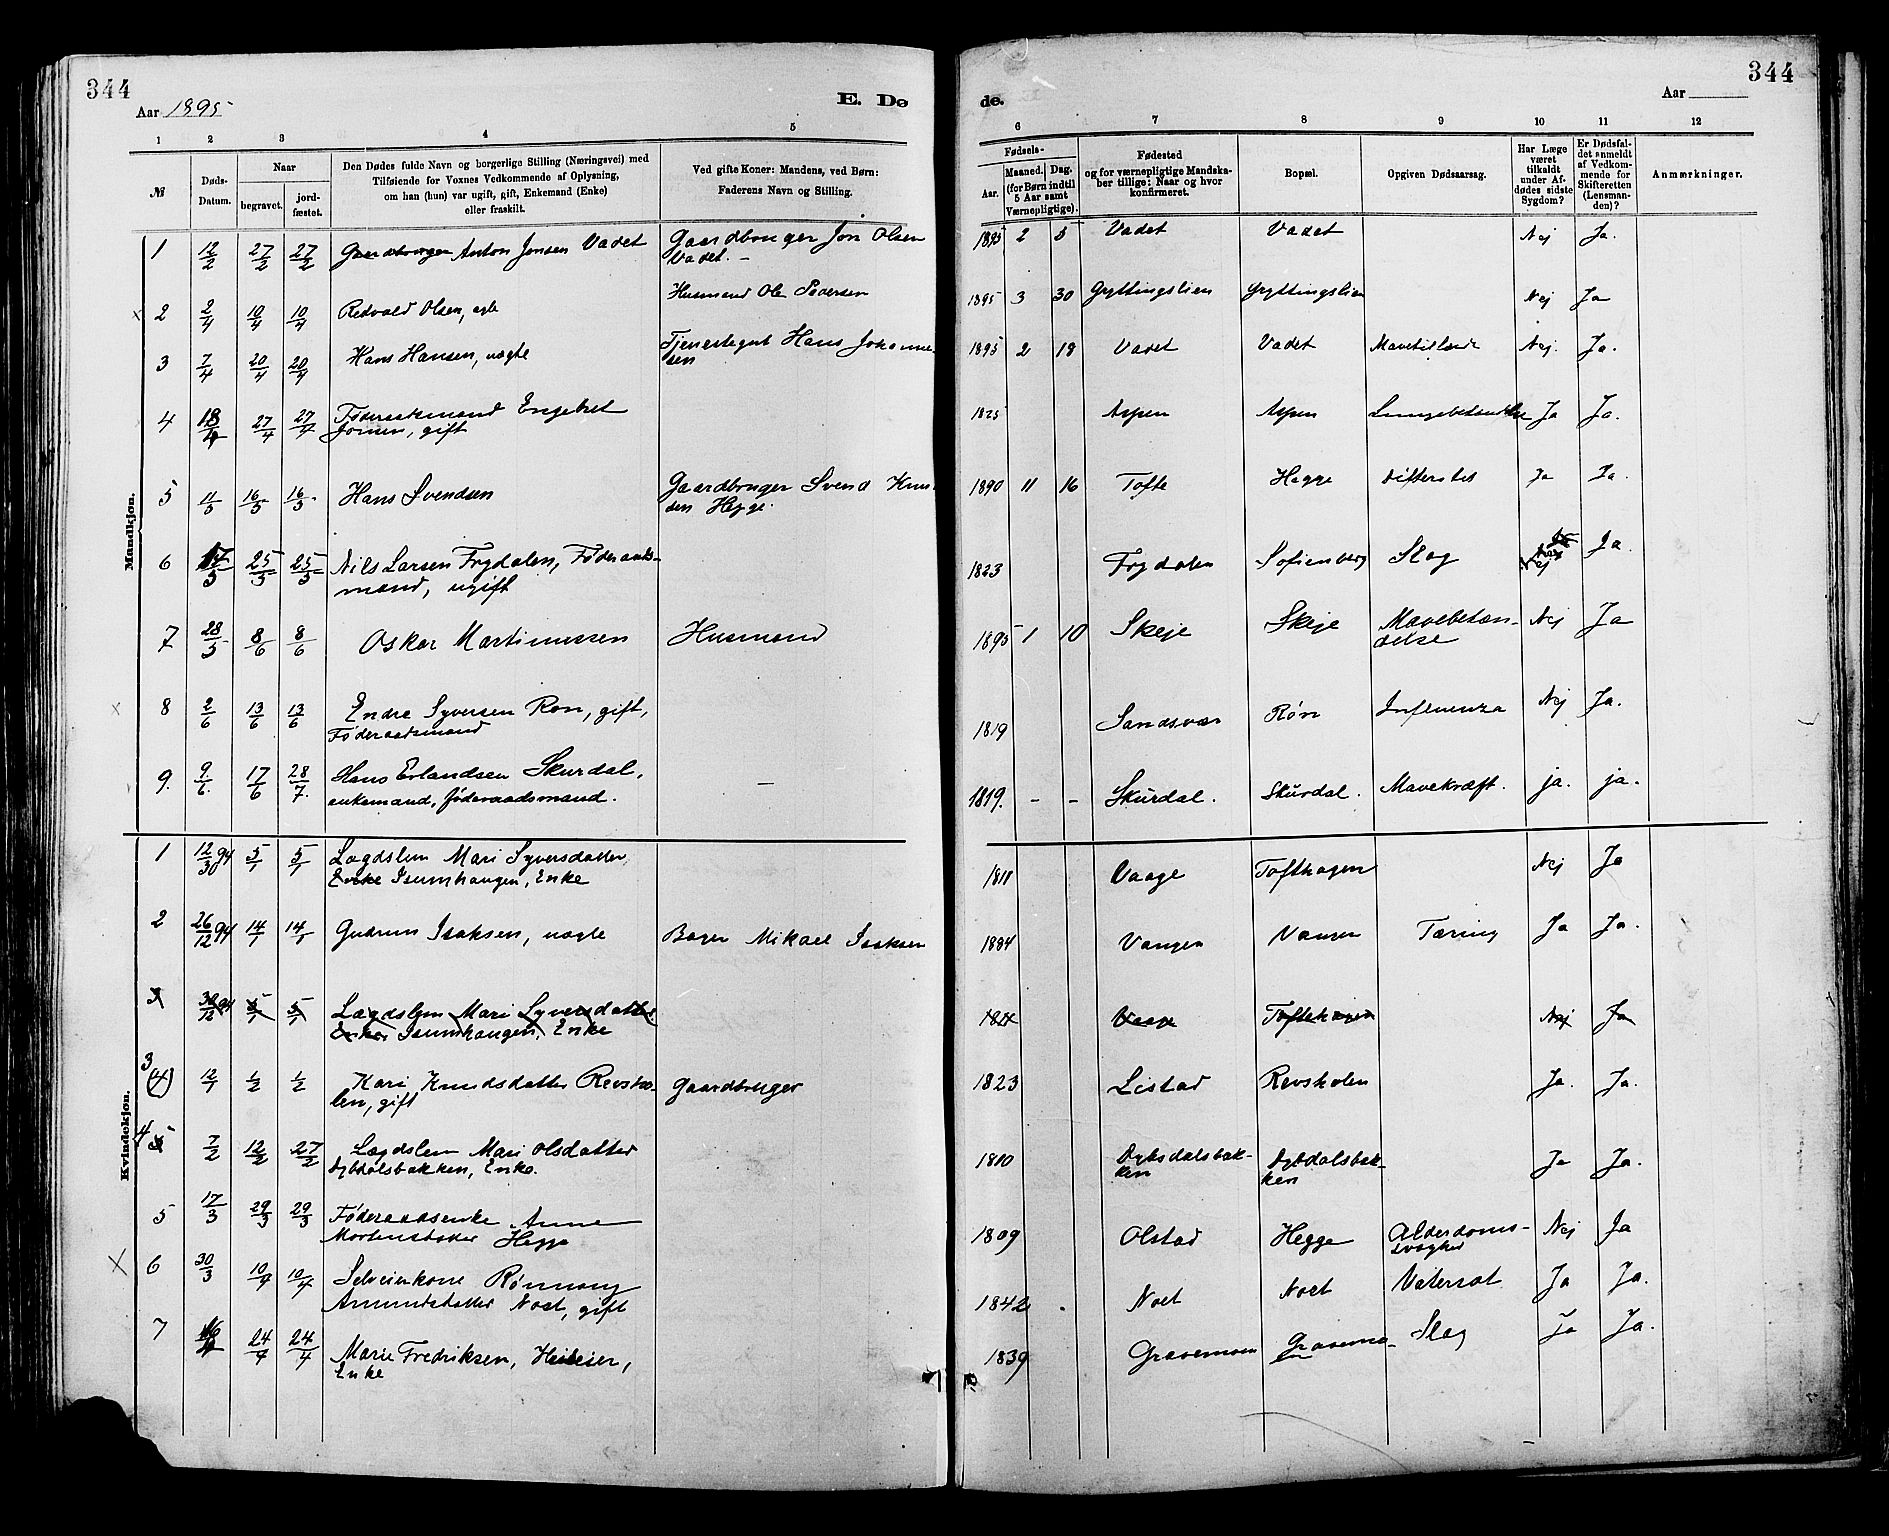 344
344
Aar 1895
E. Dø
de.
Aar
1 2 3 4 5 6 7 8 9 10 11 12
№
Døds-
Datum.
Naar
begravet.
jord-
fæstet.
Den Dødes fulde Navn og borgerlige Stilling (Næringsvei) med
Tilføiende for Voxnes Vedkommende af Oplysning,
om han (hun) var ugift, gift, Enkemand (Enke)
eller fraskilt.
Ved gifte Koner: Mandens, ved Børn:
Faderens Navn og Stilling.
Fødsels-
Aar.
Maaned.
Dag.
(for Børn indtil
5 Aar samt
Værnepligtige).
Fødested
og for værnepligtige Mandska-
ber tillige: Naar og hvor
konfirmeret.
Bopæl.
Opgiven Dødsaarsag.
Har Læge
været
tilkaldt
under Af-
dødes sidste
Sygdom?
Er Dødsfal-
det anmeldt
af Vedkom-
mende for
Skifteretten
(Lensman-
den)?
Anmærkninger.
Mandkjøn.
1 12/2 27/2 27/2 Gaardbruger Anton Jonsen Vadet Gaardbruger Jon Olsen 1895 2 5 Vadet Vadet Nej Ja.
Vadet. –
2 2/4 10/4 10/4 Redvald Olsen, egte Husmand Ole Pedersen 1895 3 30 Gryttingslien Gryttingslien Nej Ja
3 7/4 20/4 20/4 Hans Hansen, uægte Tjenestegut Hans Johanne- 1895 2 18 Vadet Vadet Nej. Ja.
sen
4 18/4 27/4 27/4 Føderaadsmand Engebret 1825 Aspen Aspen Ja Ja.
Jonsen, gift
5 11/5 16/5 16/5 Hans Svendsen Gaardbruger Svend Knu- 1890 11 16 Tofte Hegge Difterites Ja Ja.
sen Hegge.
6 17/5 25/5 25/5 Nils Larsen Frydalen, Føderaads- 1823 Frydalen Sofienberg Slag Ja.
mand, ugift
7 28/5 8/6 8/6 Oskar Martinussen Husmand 1895 1 10 Skeje Skeje Mavebetæn- Nej Ja
delse
8 2/6 13/6 13/6 Endre Syversen Ron, gift, 1819 Sandsvær Røn Influenza Nej Ja.
Føderaadsmand
9. 9/6. 17/6 28/7. Hans Erlandsen Skurdal, – 1819. – – Skurdal. Skurdal. Mavekræft. ja. ja.
enkemand, føderaadsmand.
Kvindekjøn.
1 12/30 94 5/1 5/1 Lægdslem Mari Syversdatter 1811 Vaage Tofthagen Nej Ja
Enke Isumhaugen, Enke
2 26/12 94 14/1 14/1 Gudrun Isaksen, uægte Bager Mikael Isaksen 1884 Vangen Vangen Tæring Ja Ja.
3 30/12 94 5/1 5/1 Lægdslem Mari Syversdatter 1811 Vaage Toftehagen Nej Ja
Enke Isumhaugen, Enke
3 (4) 12/1 1/2 1/2 Kari Knudsdatter Revsho- Gaardbruger 1823 Listad Revsholen Ja. Ja.
len, gift
4 5 7/2 12/2 27/2 Lægdslem Mari Olsdatter 1810 Dybdalsbak- Dybdalsbak- Ja Ja.
Dybdalsbakken, Enke. ken ken
5 17/3 29/3 29/3 Føderaadsenke Anne 1809 Olstad Hegge Alderdoms- Nej Ja
Mortensdatter Hegge svaghed
6 30/3 10/4 10/4 Selveierkone Rønnaug 1842 Noet Noet Vatersot Ja Ja.
Amundsdatter Noet, gift
7 24/4 24/4 Marie Fredriksen, Huseier, 1839 Gravemoen Gravemo- Slag Ja Ja.
Enke en